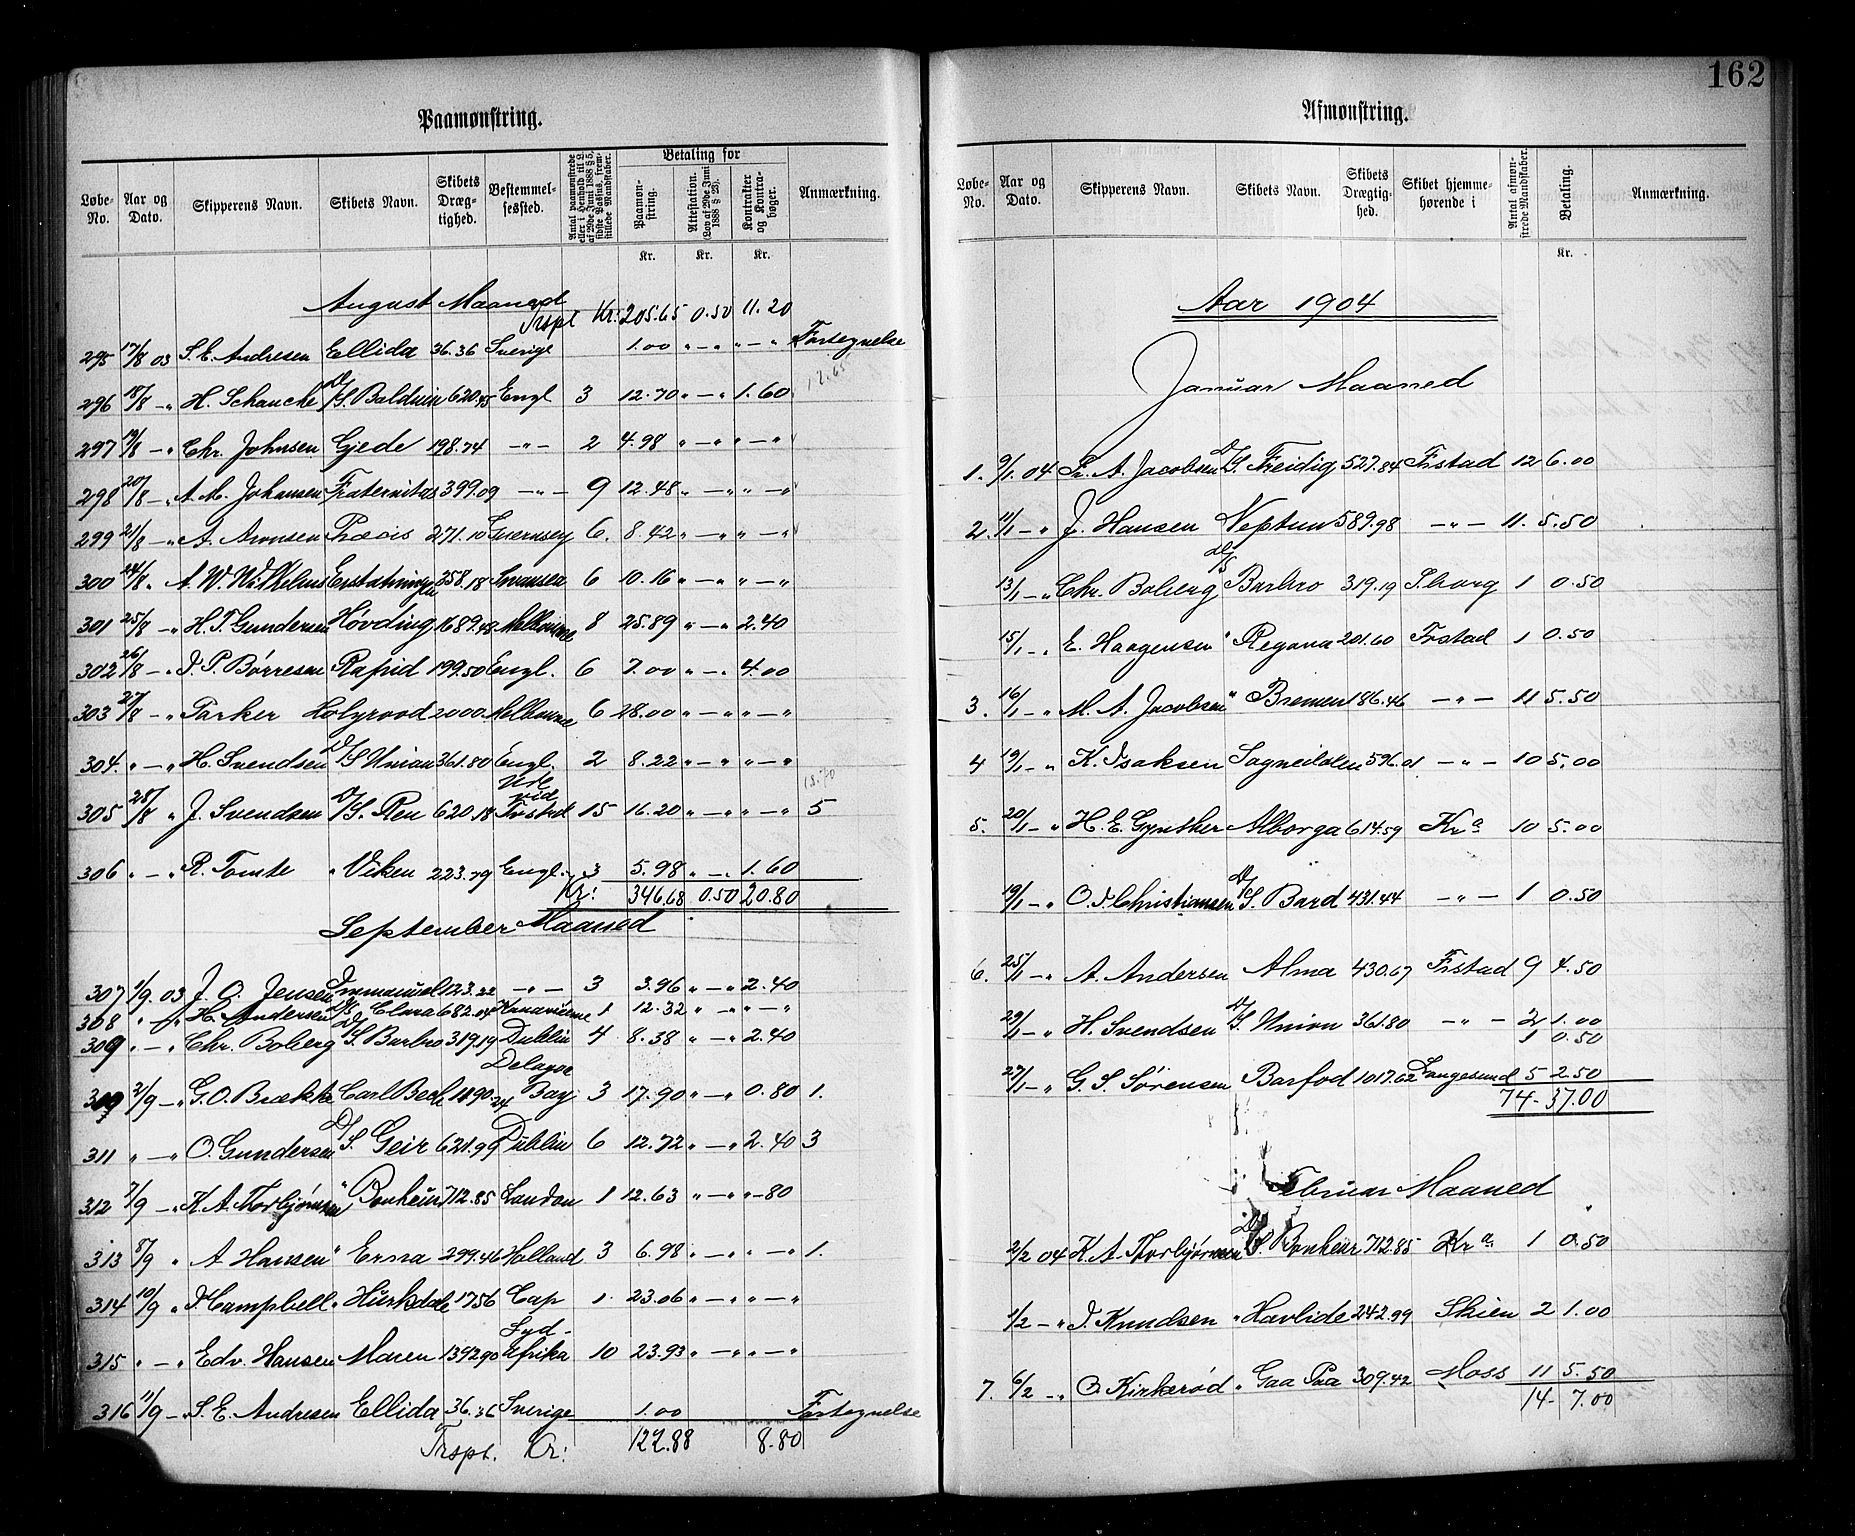 162
Paamønstring.
Løbe-No. | Aar og Dato. | Skipperens Navn. | Skibets Navn. | Skibets Dræg-tighed. | Bestemmel-sessted. | Antal paamønstrede eller i Henhold til L. af 29de Juni 1888 § 5, sidste Passus, frem-stillede Mandskaber. | Betaling for | Paamøn-string. | Attestation. (Lov af 29de Juni 1888 § 23). | Kontrakter og Kontra-bøger. | Anmærkning.
Kr. | Kr. | Kr.
August Maaned
Trspt Kr: 205.65 0.50 11.20
295 17/8 03 S. E. Andresen Ellida 36.36 Sverige 1.00 " — " " — " Fortegnelse
296 18/8 — " H. Schanche D/S Baldwin 620.45 Engl 3 12.70 " — " 1.60
297 19/8 — " Chr. Johnsen Gjede 198.74 — " — 2 4.98 " — " " — "
298 20/8 — " A. M. Johansen Fraternitas 399.09 — " — 9 12.48 " — " " — "
299 21/8 — " A. Aronsen 271.10 Guernsey 6. 8.42 " — " " — "
300 24/8 " A. W. Wilhelms Erstatningen 358.18 Swansea 6 10.16 " — " " — "
301 25/8 — " H. T. Gundersen Høvding 1689.48 Melbourne 8 25.89 " — " 2.40
302 26/8 — " J. P. Børresen Rapid 199.50 Engl. 6 7.00 " — " 4.00
303 27/8 — " Parker Holyrood 2000. Melbourne 6 28.00 " — " " — "
304. " — " H. Svendsen D/S Union 361.80 Engl. 2 8.22 " — " " — "
305 28/8 " J. Svendsen D/S Ren 620.18 Url vid Frstad 15 16.20 " — " " — " 5
306 " — " R. Tomte " Viken 223.79 Engl. 3 5.98 " — " 1.60
Kr: 346.68 0.50 20.80
September Maaned
307 1/9 03 J. O. Jensen Immanuel 123.22 — " — 3 3.96 " — " 2.40
308 " — " H. Andersen D/S Clara 682.04 1 12.32 " — " " — "
309 " — " Chr. Boberg D/S Barbro 319.19 Dublin 4 8.38 " — " 2.40
309 2/9 — " G. O. Brække Carl Bech 1190.24 Delagoe Bay 3 17.90 " — " 0.80 1.
311 " — " O. Gundersen D/S Geir 621.99 Dublin 6 12.72 " — " 2.40 3
312 7/9 — " K. A. Thorbjørnsen " Bonheur 712.85 London 1 12.63 " — " " -80
313 8/9 " A Hansen " Erna 299.46 Holland 3 6.98 " — " " — " 1.
314 10/9 " J. Campbell " Huskdale 1756 Cap 1. 23.06 " — " " — "
315 " — " Edv. Hansen Maren 1342.90 Syd-Afrika 10 23.93 " — " " — "
316 11/9 — " S. E. Andresen Ellida 36.36 Sverige 1.00 Fortegnelse
Trspt. Kr: 127.88 8.80
Afmønstring.
Løbe-No. | Aar og Dato. | Skipperens Navn. | Skibets Navn. | Skibets Drægtig-hed. | Skibet hjemme-hørende i | Antal afmøn-strede Mandskaber. | Betaling. | Anmærkning.
Kr.
Aar 1904
Januar Maaned
1. 9/1. 04 Fr. A. Jacobsen D/S Freidig 527.84 Frstad 12 6.00
2. 11/1 — " J. Hansen Neptun 589.98 — " — 11. 5.50
13/1 — " Chr. Boberg D/S Barbro 319.19 S.borg 1 0.50
15/1 — " E. Haagensen " Regana 201.60 Frstad 1 0.50
3. 16/1 — " M. A. Jacobsen " Bremen 186.46 — " — 11 5.50
4 19/1 — " K. Isaksen Sognedalen 596.01 — " — 10 5.00
5. 20/1 — " H. E. Gynther Alborga 614.59 Kra 10 5.00
19/1 — " O. J. Christiansen D/S Bard 431.44 — " — 1 0.50
6. 25/1 — " A. Andersen Alma 430.67 Frstad 9 4.50
29/1 — " H. Svendsen D/S Union 361.80 — " — 2 1.00
1 0.50
27/1 — " G. S. Sørensen Barfod 1017.62 Langesund 5 2.50
74 - 37.00
Februar Maaned
2/2 04 K. A. Thorbjørnsen D/S. Bonheur 712.85 Kra 1 0.50
1/2 — " J. Knudsen " Havlide 242.99 Skien 2 1.00
7. 6/2 — " O. Kirkerød " Gaa Paa 309.42 Moss 11 5.50
14 - 7.00